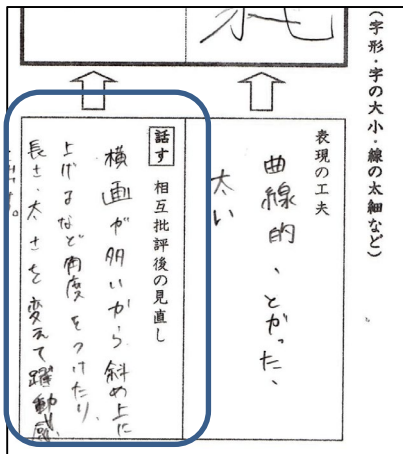 （字形・字の大小・線の太細など）
表現の工夫
曲線的、とがった、
太い
話す 相互批評後の見直し
横画が多いから斜め上に
上げるなど角度をつけたり、
長さ、太さを変えて躍動感